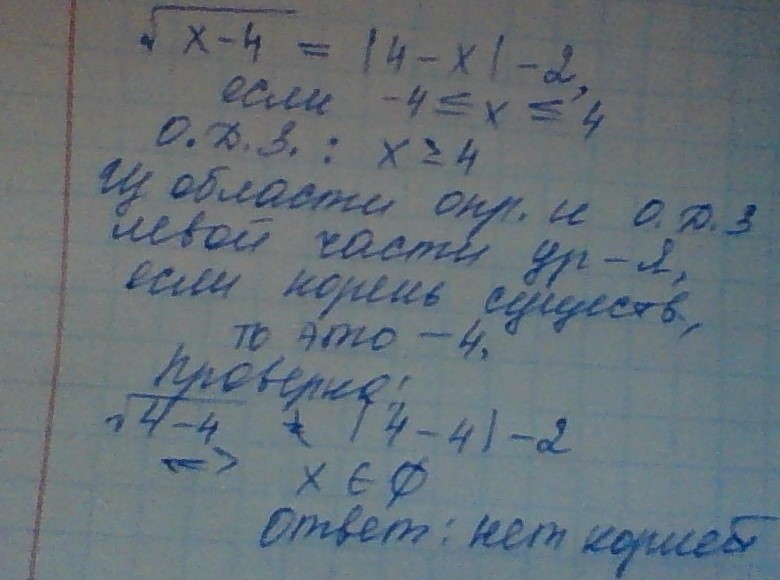 √x-4 = |4-x| -2,
если -4 ≤ x ≤ 4
О.Д.З.: x ≥ 4
Из области опр. и О.Д.З
левой части ур-я,
если корень существ,
то это - 4.
Проверка:
√4-4 ≠ |4-4| -2
<=> x ∈ ∅
Ответ: нет корней